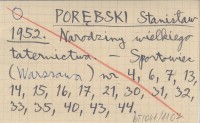 PORĘBSKI Stanisław
1952. Narodziny wielkiego
taternictwa. – Sportowiec
(Warszawa) nr 4, 6, 7, 13,
14, 15, 16, 17, 21, 30, 31, 32,
33, 35, 40, 43, 44.